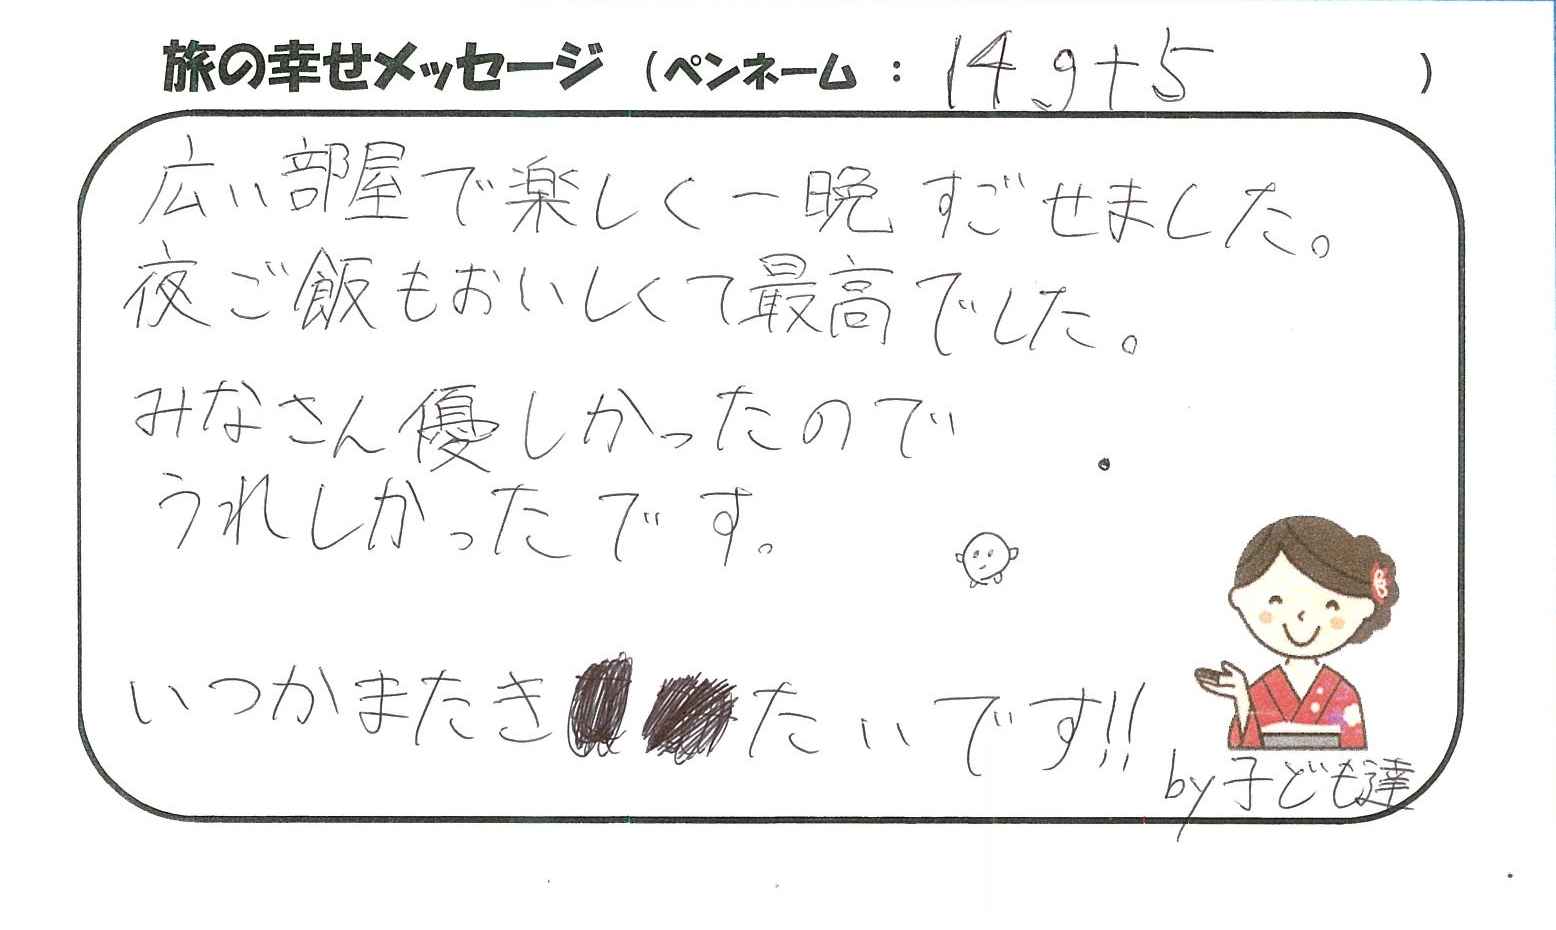 旅の幸せメッセージ (ペンネーム : 14g+5 )
広い部屋で楽しく一晩すごせました。
夜ご飯もおいしくて最高でした。
みなさん優しかったので
うれしかったです。
いつかまたきたいです!!
by子ども達